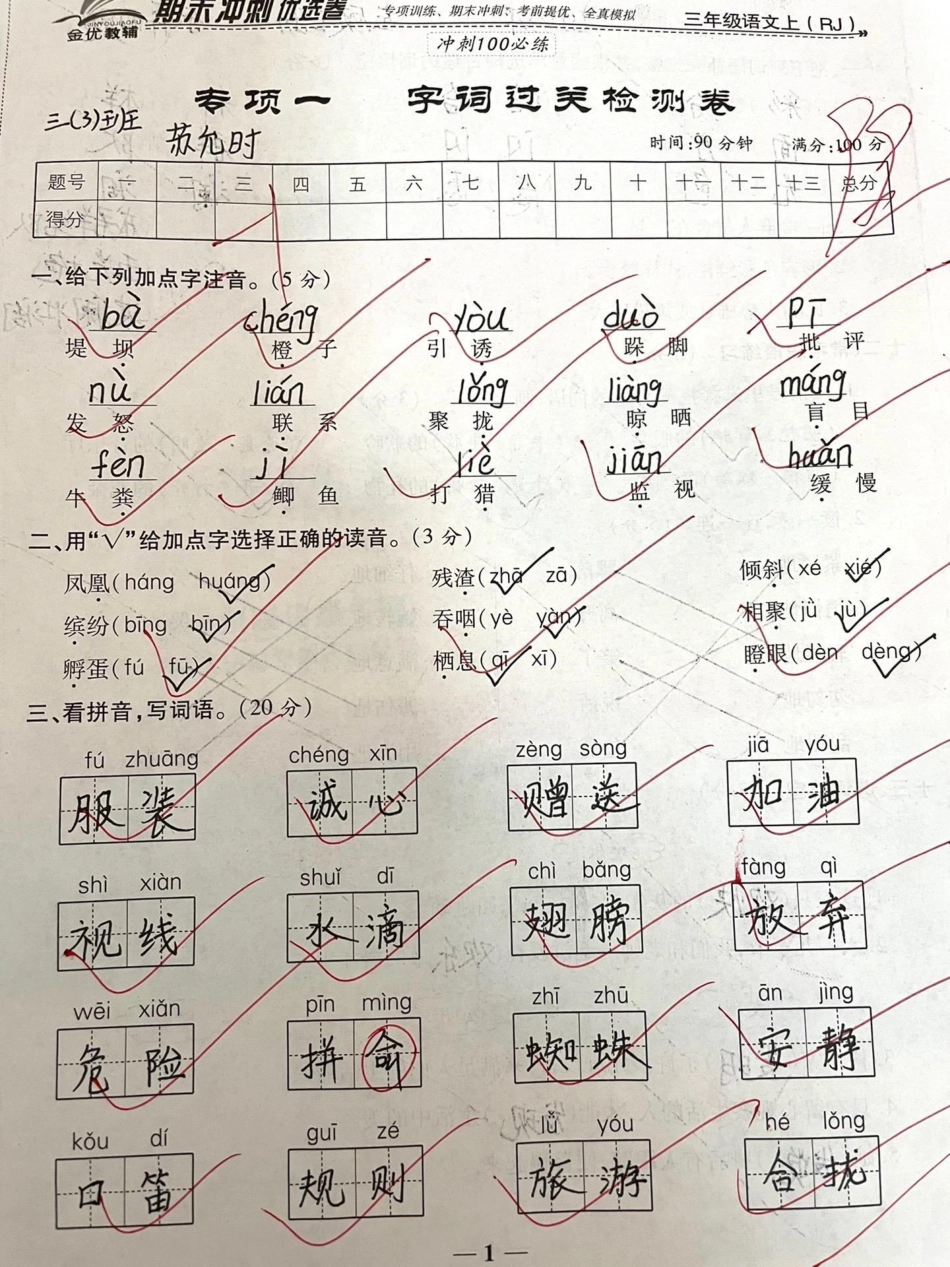 金优教辅 期末冲刺优选卷 专项训练、期末冲刺、考前提优、全真模拟 三年级语文上(RJ)
冲刺100必练
专项一 字词过关检测卷
三(3)班 苏允时 时间:90分钟 满分:100分
题号 一 二 三 四 五 六 七 八 九 十 十一 十二 十三 总分
得分
一、给下列加点字注音。(5分)
bà chéng yòu duò pī
堤坝 橙子 引诱 跺脚 批评
nù lián lǒng liàng máng
发怒 联系 聚拢 晾晒 盲目
fèn jì liè jiān huǎn
牛粪 鲫鱼 打猎 监视 缓慢
二、用“√”给加点字选择正确的读音。(3分)
凤凰(háng huáng√) 残渣(zhā√ zā) 倾斜(xé xié√)
缤纷(bīng bīn√) 吞咽(yè yàn√) 相聚(jǜ jù√)
孵蛋(fú fū√) 栖息(qī√ xī) 瞪眼(dèn dèng√)
三、看拼音,写词语。(20分)
fú zhuāng chéng xīn zèng sòng jiā yóu
服装 诚心 赠送 加油
shì xiàn shuǐ dī chì bǎng fàng qì
视线 水滴 翅膀 放弃
wēi xiǎn pīn mìng zhī zhū ān jìng
危险 拼命 蜘蛛 安静
kǒu dí guī zé lǚ yóu hé lǒng
口笛 规则 旅游 合拢
— 1 —